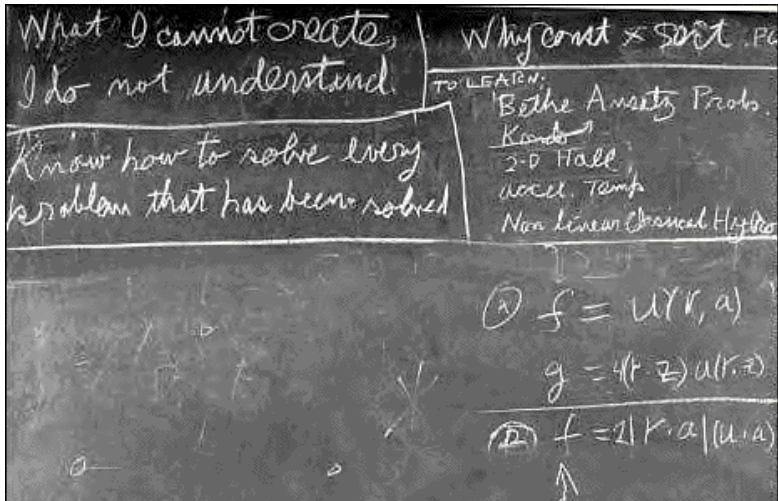 What I cannot create,
I do not understand.
Know how to solve every
problem that has been solved
Why const × sort . PG
TO LEARN:
Bethe Ansatz Probs.
Kondo
2-D Hall
accel. Temp
Non linear Classical Hydro
Ⓐ f = u(r, a)
g = 4(r·z) u(r·z)
Ⓑ f = 2|r·a|(u·a)